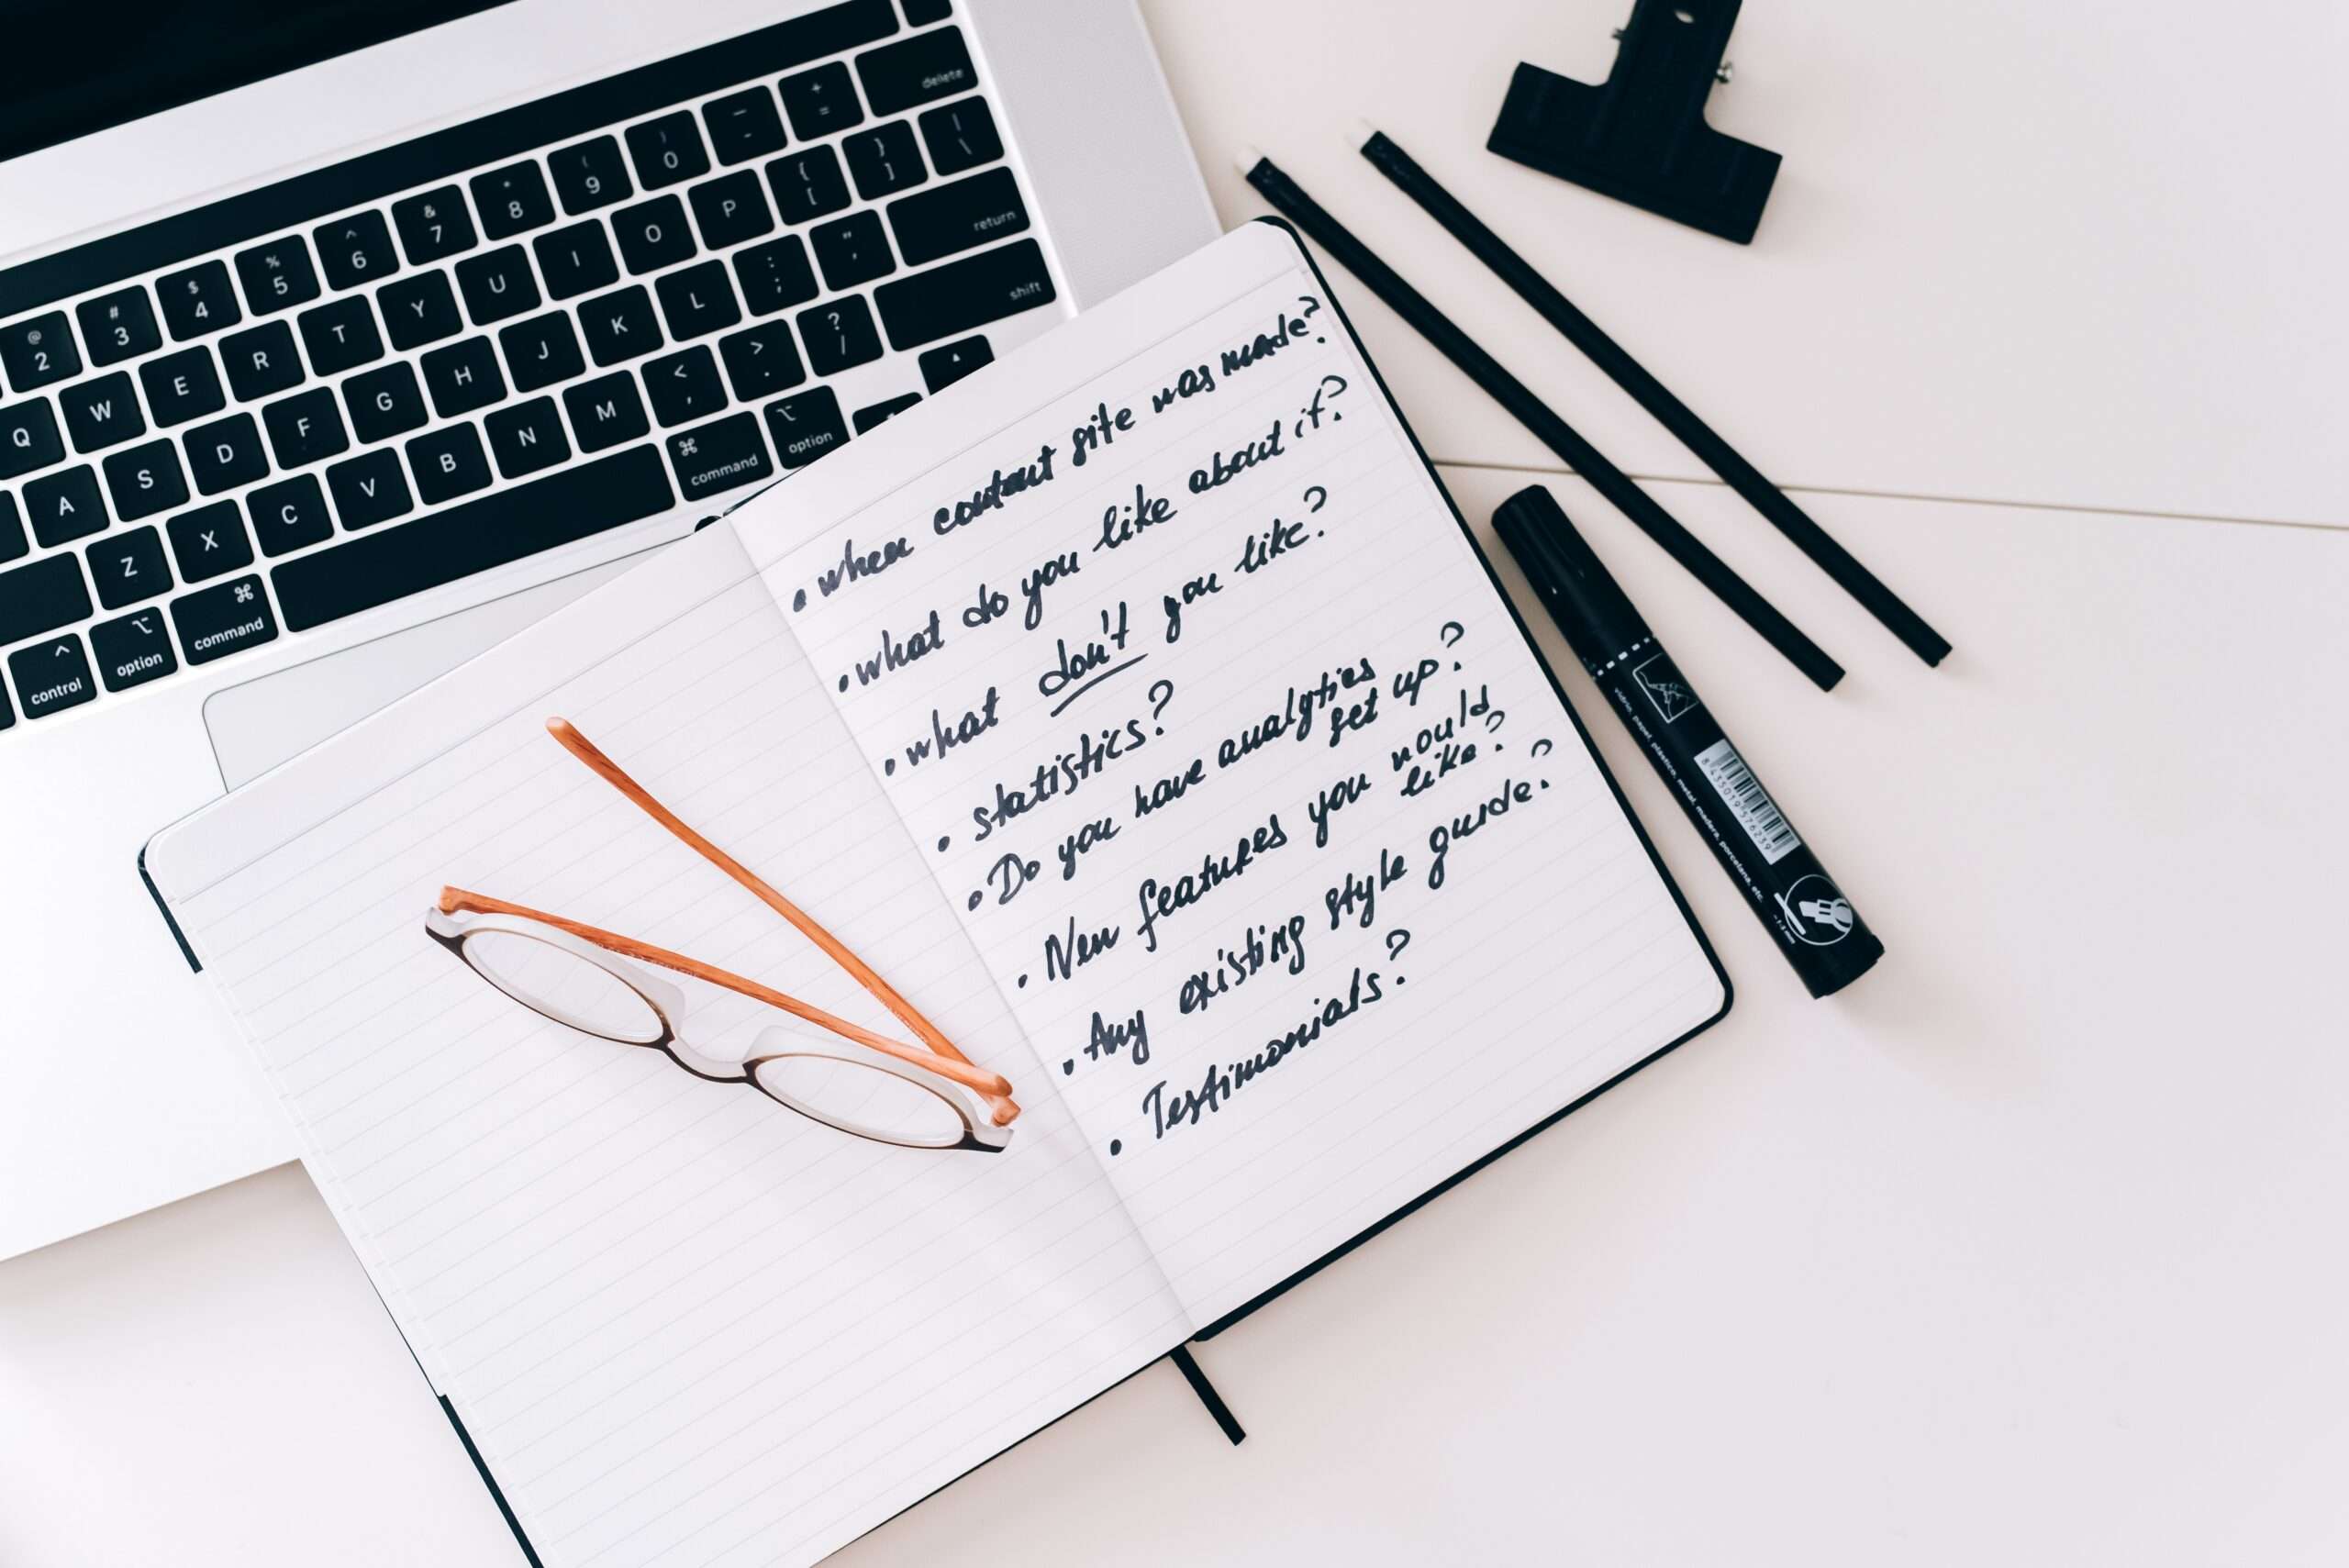 delete
+ =
_ -
) 0
( 9
* 8
& 7
^ 6
% 5
$ 4
# 3
@ 2
| \
} ]
{ [
P
O
I
U
Y
T
R
E
W
Q
return
" '
: ;
L
K
J
H
G
F
D
S
A
shift
? /
> .
< ,
M
N
B
V
C
X
Z
⌥ option
⌘ command
⌘ command
⌥ option
^ control
• when content site was made?
• what do you like about it?
• what don't you like?
• statistics?
• Do you have analytics
set up?
• New features you would
like?
• Any existing style guide?
• Testimonials?
vidrio, papel, plástico, metal, madera, porcelana, etc.
8435019576239